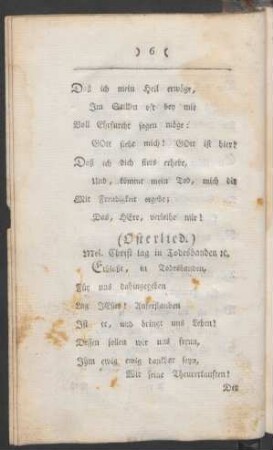 ) 6 (
Daß ich mein Heil erwäge,
Im Stillen oft bey mir
Voll Ehrfurcht sagen möge:
GOtt siehe mich! GOtt ist hier!
Daß ich dich stets erhebe,
Und, kommt mein Tod, mich dir
Mit Freudigkeit ergebe;
Das, HErr, verleihe mir!
(Osterlied.)
Mel. Christ lag in Todesbanden ꝛc.
Erblaßt, in Todesbanden,
Für uns dahingegeben
Lag JEsus! Auferstanden
Ist er, und bringt uns Leben!
Dessen sollen wir uns freun,
Ihm ewig ewig dankbar seyn,
Wir seine Theuererlausten!
Der